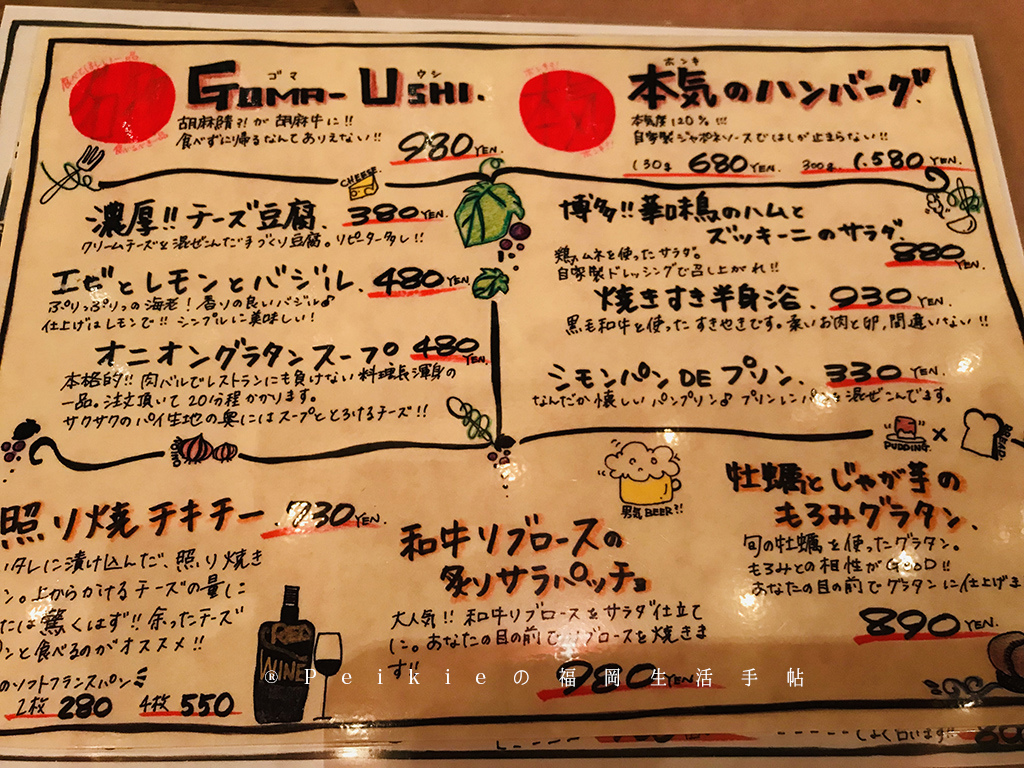 食べてほしい一品
ゴマ ウシ
GOMA-USHI.
胡麻鯖?! が 胡麻牛に!!
食べずに帰るなんてありえない!!
980YEN.
ホンキ
本気のハンバーグ.
本気度120%!!!
自家製ジャポネソースではしが止まらない!!
150g 680YEN. 300g 1.580YEN.
CHEESE.
濃厚!! チーズ豆腐. 380YEN.
クリームチーズを混ぜこんだ手づくり豆腐。リピーター多し!!
エビとレモンとバジル. 480YEN.
ぷりっぷりっの海老！香りの良いバジル♪
仕上げはレモンで!! シンプルに美味しい！
オニオングラタンスープ 480YEN.
本格的!! 肉バルでレストランにも負けない料理長渾身の
一品。注文頂いて20分程かかります。
サクサクのパイ生地の奥にはスープととろけるチーズ!!
博多!! 華味鳥のハムと
ズッキーニのサラダ.
鶏ムネを使ったサラダ。
自家製ドレッシングで召し上がれ!!
880YEN.
焼きすき半身浴. 930YEN.
黒毛和牛を使ったすきやきです。柔いお肉と卵,間違いない!!
シモンパン DE プリン. 330YEN.
なんだか懐しいパンプリン♪ プリンにパンを混ぜこんでます。
PUDDING. × BREAD.
照り焼チキチー. 930YEN.
タレに漬け込んだ、照り焼き
ン。上からかけるチーズの量に
たは驚くはず!! 余ったチーズ
ンと食べるのがオススメ!!
のソフトフランスパン
2枚 280 4枚 550
RED
WINE
男気BEER?!
和牛リブロースの
炙りサラパッチョ
大人気!! 和牛リブロースをサラダ仕立て
に。あなたの目の前でリブロースを焼きま
す!!
980YEN.
牡蠣とじゃが芋の
もろみグラタン.
旬の牡蠣を使ったグラタン。
もろみとの相性がGOOD!!
あなたの目の前でグラタンに仕上げま
890YEN.
®Peikieの福岡生活手帖